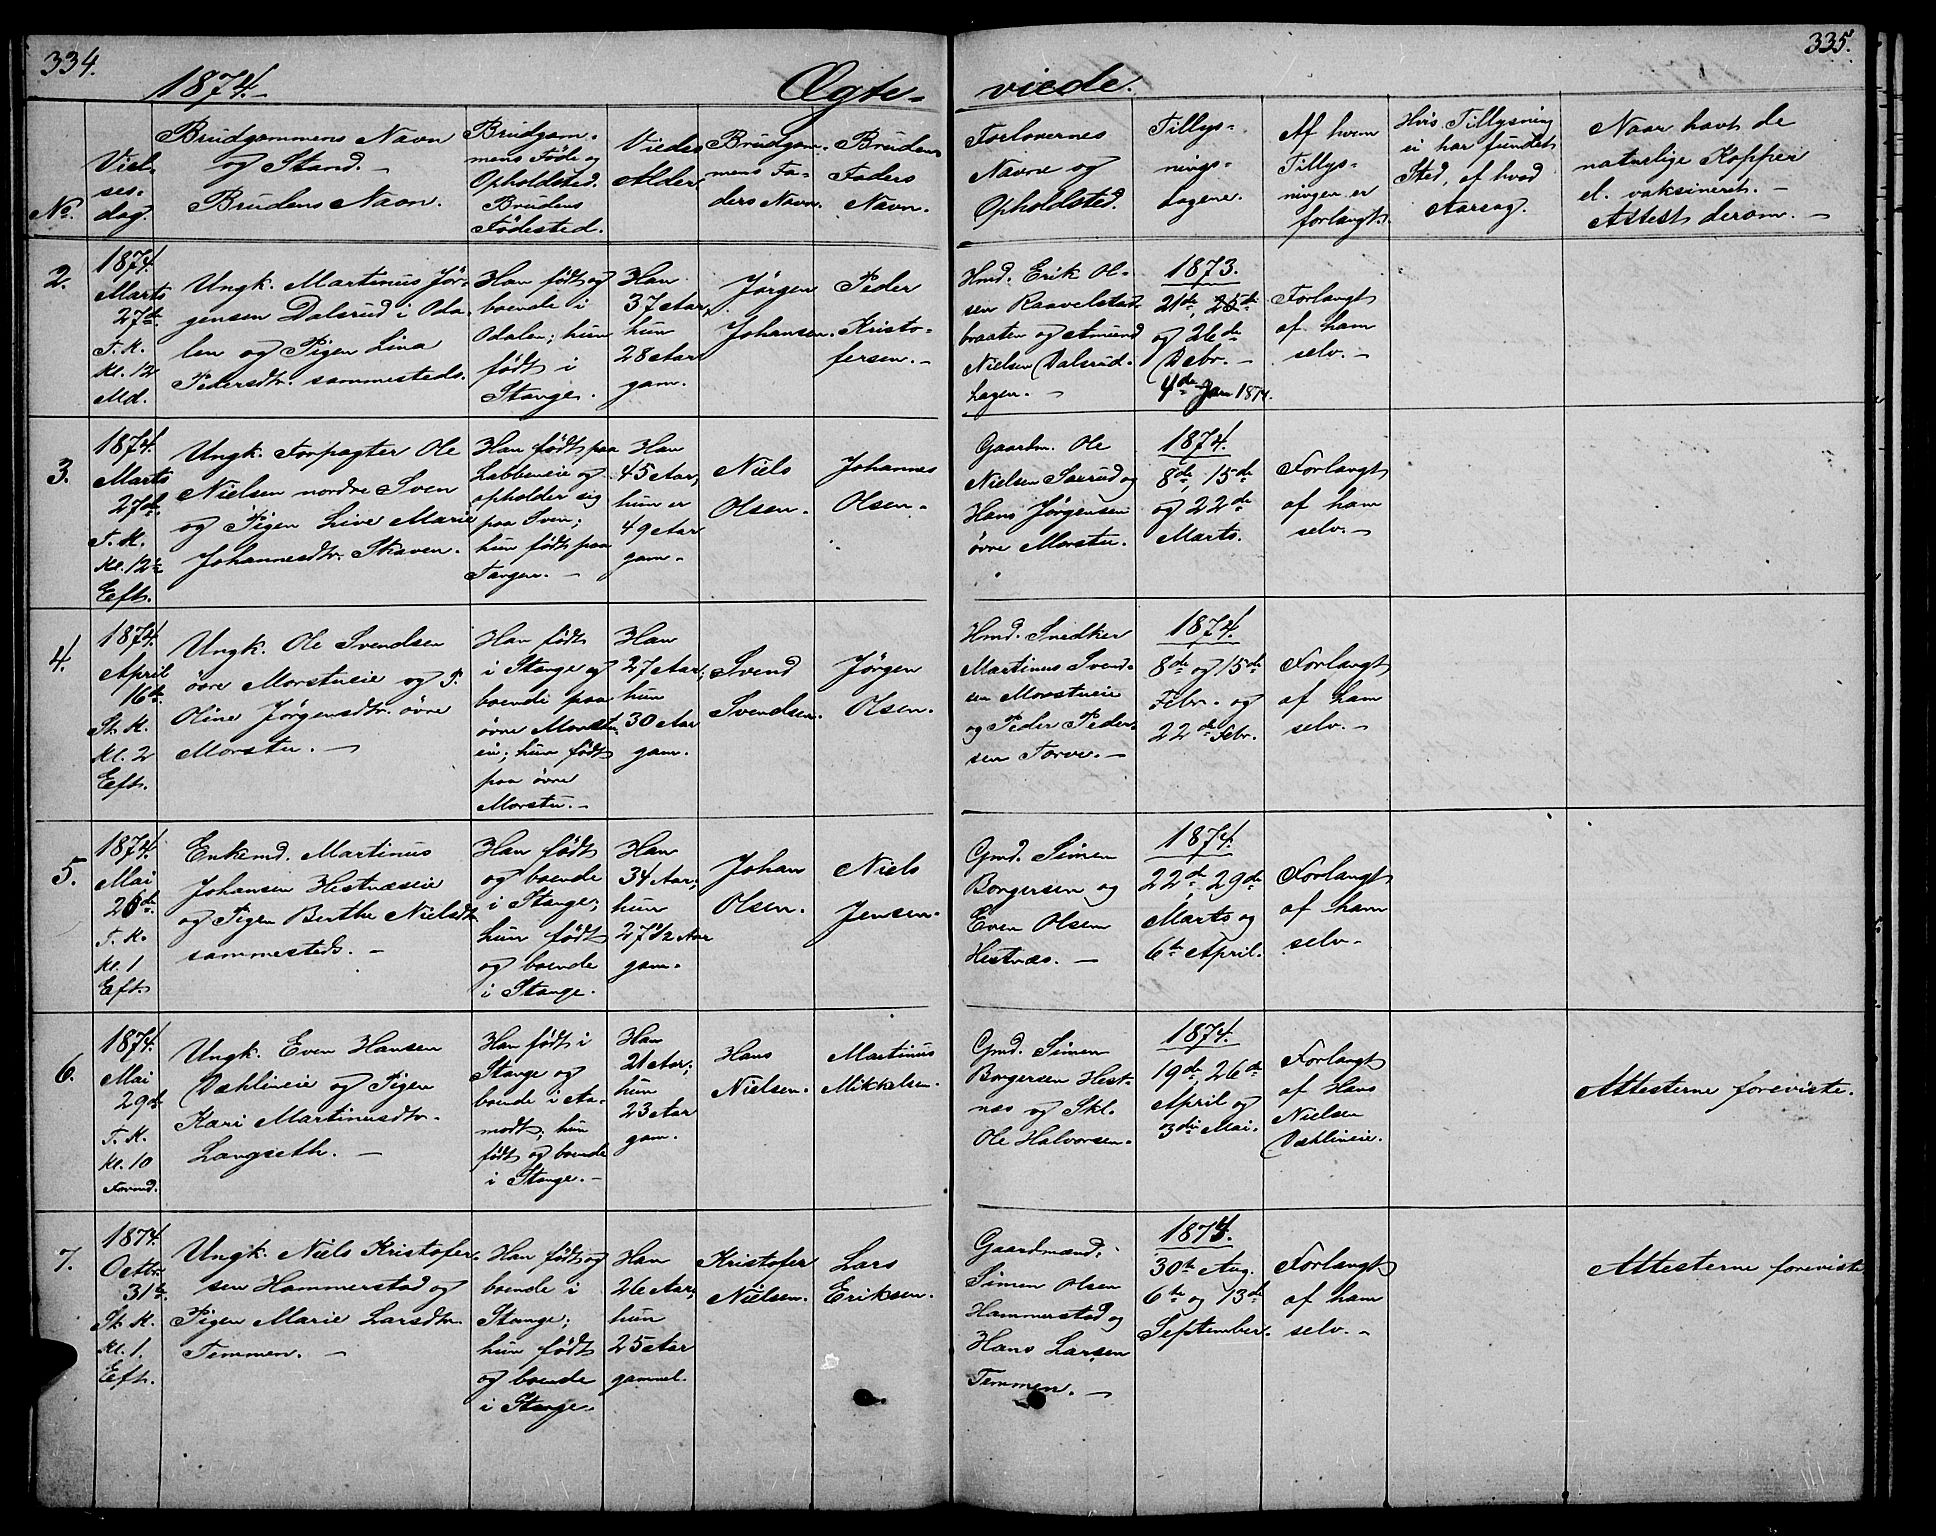 334.
1874.
Ægte-
No.
Viel-
ses-
dag.
Brudgommens Navn
og Stand. -
Brudens Navn.
Brudgom-
mens Føde og
Opholdsted.
Brudens
Fødested.
Viedes
Alder.
Brudgom-
mens Fa-
ders Navn.
Brudens
Faders
Navn.
2.
1874.
Marts
27de
T. K.
Kl. 12
Md.
Ungk. Martinus Jør-
gensen Dalsrud i Oda-
len og Pigen Lina
Pedersdtr. sammesteds.
Han født og
boende i
Odalen; hun
født i
Stange.
Han
37 Aar,
hun
28 Aar
gam.
Jørgen
Johansen.
Peder
Kristo-
fersen. -
3.
1874.
Marts
27de
T. K.
Kl. 12½
Eft.
Ungk. Forpagter Ole
Nielsen nordre Sven
og Pigen Live Marie
Johannesdtr. Skaven.
Han født paa
Labbeneie og
opholder sig
paa Sven;
hun født paa
Targen. -
Han
45 Aar,
hun er
49 Aar
gam.
Niels
Olsen.
Johannes
Olsen.
4.
1874.
April
16de
St. K.
Kl. 2
Eft.
Ungk. Ole Svendsen
øvre Morstueie og P.
Oline Jørgensdtr. øvre
Morstu. -
Han født
i Stange og
boende paa
øvre Morstu-
eie; hun født
paa øvre
Morstu. -
Han
27 Aar;
hun
30 Aar
gam.
Svend
Svendsen.
Jørgen
Olsen.
5.
1874.
Mai
26de
T. K.
Kl. 1
Eft.
Enkemd. Martinus
Johansen Hestnæseie
og Pigen Berthe Nielsdtr.
sammesteds. -
Han født
og boende
i Stange;
hun født
og boende
i Stange.
Han
34 Aar;
hun
27 1/2 Aar
gam.
Johan
Olsen.
Niels
Jensen.
6.
1874.
Mai
29de
T. K.
Kl. 10
Formd.
Ungk. Even Hansen
Dæhlineie og Pigen
Kari Martinusdtr.
Langseth. -
Han født i
Stange og
boende i Aa-
modt; hun
født og boende
i Stange. -
Han
21 Aar;
hun
23 Aar
gam.
Hans
Nielsen.
Martinus
Mikkelsen.
7.
1874.
Octbr.
31te
St. K.
Kl. 1.
Eft.
Ungk. Niels Kristofer-
sen Hammerstad og
Pigen Marie Larsdtr.
Temmen. -
Han født og
boende i
Stange;
hun født
og boende
i Stange.
Han
26 Aar;
hun
25 Aar
gammel.
Kristofer
Nielsen.
Lars
Eriksen.
335.
viede.
Forlovernes
Navne og
Opholdsted.
Tillys-
nings-
dagene.
Af hvem
Tillys-
ningen er
forlangt.
Hvis Tillysning
ei har fundet
Sted, af hvad
Aarsag.
Naar havt de
naturlige Kopper
el. vaksineret. -
Attest derom. -
Hmd. Erik Ol-
sen Raavelstad-
braaten og Amund
Nielsen Dalsrud-
hagen. -
1873.
21de, 25de
og 26de
Debr. -
4de Jan 1874.
Forlangt
af ham
selv. -
Gaardm. Ole
Nielsen Saxrud og
Hans Jørgensen
øvre Morstu.
1874.
8de, 15de
og 22de
Marts.
Forlangt
af ham
selv. -
Hmd. Snedker
Martinus Svend-
sen Morstueie
og Peder Peder-
sen Torve. -
1874.
8de og 15de
Febr. og
22de Febr.
Forlangt
af ham
selv. -
Gmd. Simen
Borgersen og
Even Olsen
Hestnæs. -
1874.
22de, 29de
Marts og
6te April.
Forlangt
af ham
selv. -
Gmd. Simen
Borgersen Hest-
næs og Skl.
Ole Halvorsen.
1874.
19de, 26de
April og
3die Mai.
Forlangt
af Hans
Nielsen
Dæhlineie.
Attesterne foreviste.
Gaardmænd.
Simen Olsen
Hammerstad og
Hans Larsen
Temmen. -
1874.
30te Aug.
6te og 13de
September.
Forlangt
af ham
selv. -
Attesterne foreviste